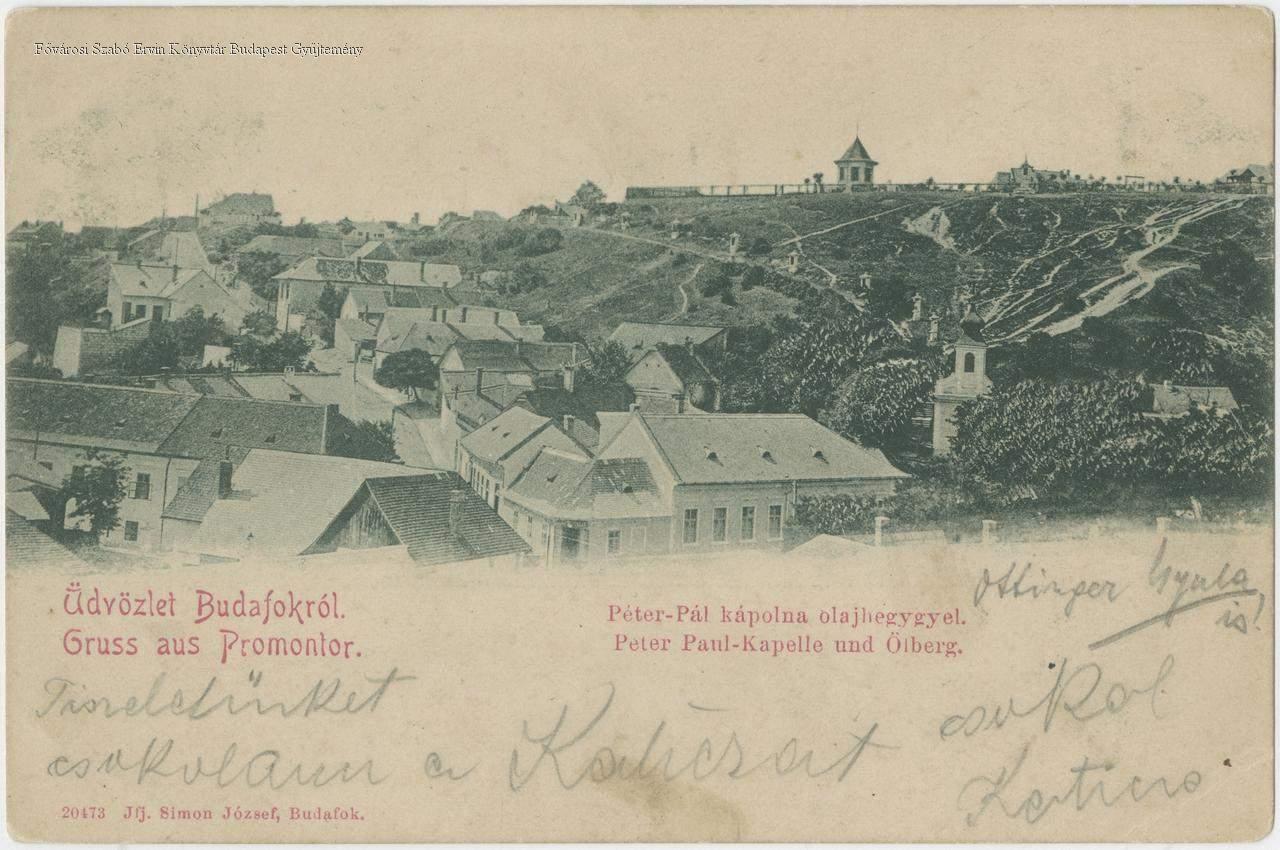 Fővárosi Szabó Ervin Könyvtár Budapest Gyűjtemény
Üdvözlet Budafokról.
Gruss aus Promontor.
Péter-Pál kápolna olajhegygyel.
Peter Paul-Kapelle und Ölberg.
Ottinger Gyula
is!
Tiszteletünket
csokol
a
20473 Jfj. Simon József, Budafok.